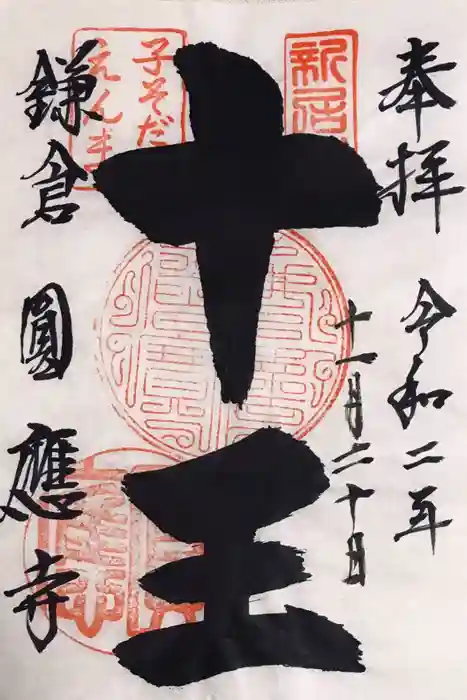 奉拝
令和二年
十一月二十日
新居
十王
子そだ
えんま
鎌倉
圓應寺